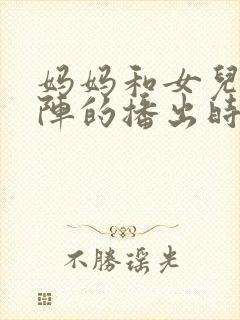 妈妈和女兒
陣的播出時
不勝謡光